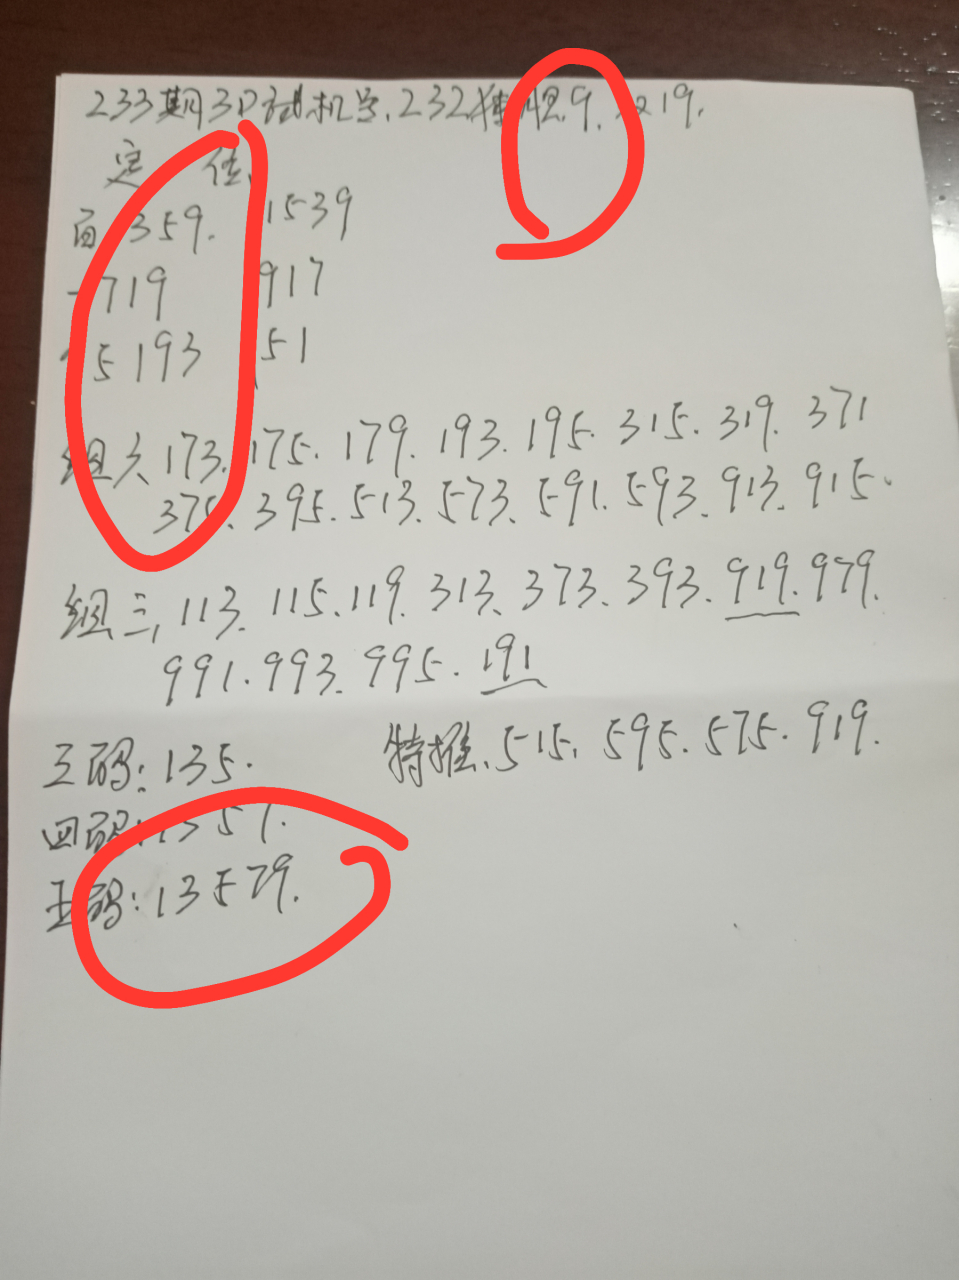 233期3D试机号.232独胆9.双19.
定 位
百359. 1539
719 917
5193 51
组六173.175.179.193.195.315.319.371
375.395.513.573.591.593.913.915.
组三,113.115.119.313.373.393.919.979.
991.993.995.191
三码:135. 特推.515.595.575.919.
四码:1357.
五码:13579.